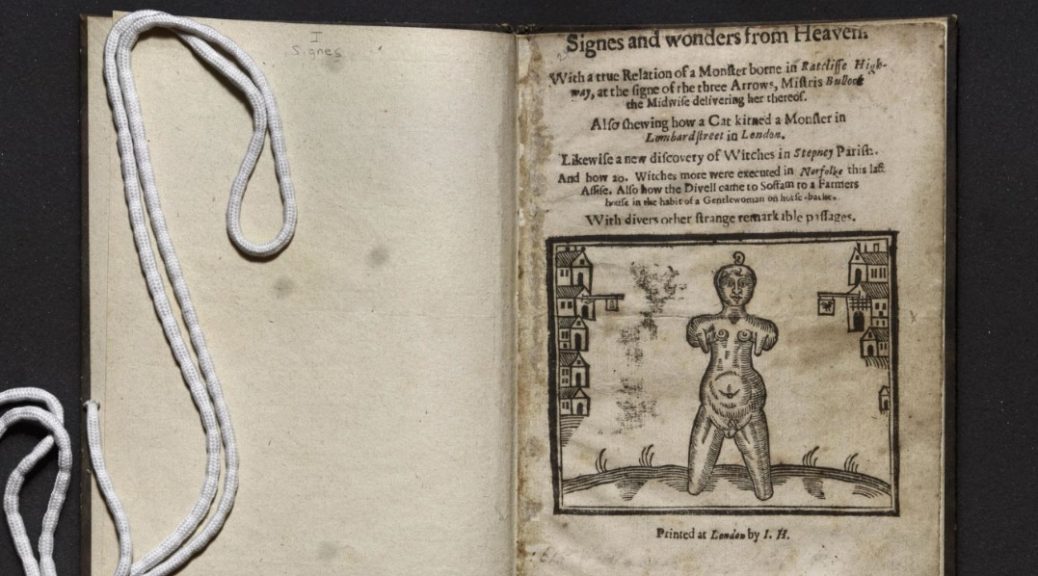 I
Signes
Signes and wonders from Heaven.
With a true Relation of a Monſter borne in Ratcliffe High-
way, at the ſigne of the three Arrows, Miſtris Bullock
the Midwife delivering her thereof.
Alſo ſhewing how a Cat kitned a Monſter in
Lombardſtreet in London.
Likewiſe a new diſcovery of Witches in Stepney Pariſh.
And how 20. Witches more were executed in Norfolke this laſt
Aſſiſe. Alſo how the Divell came to Soffam to a Farmers
houſe in the habit of a Gentlewoman on horſe-backe.
With divers other ſtrange remarkable paſſages.
Printed at London by I. H.